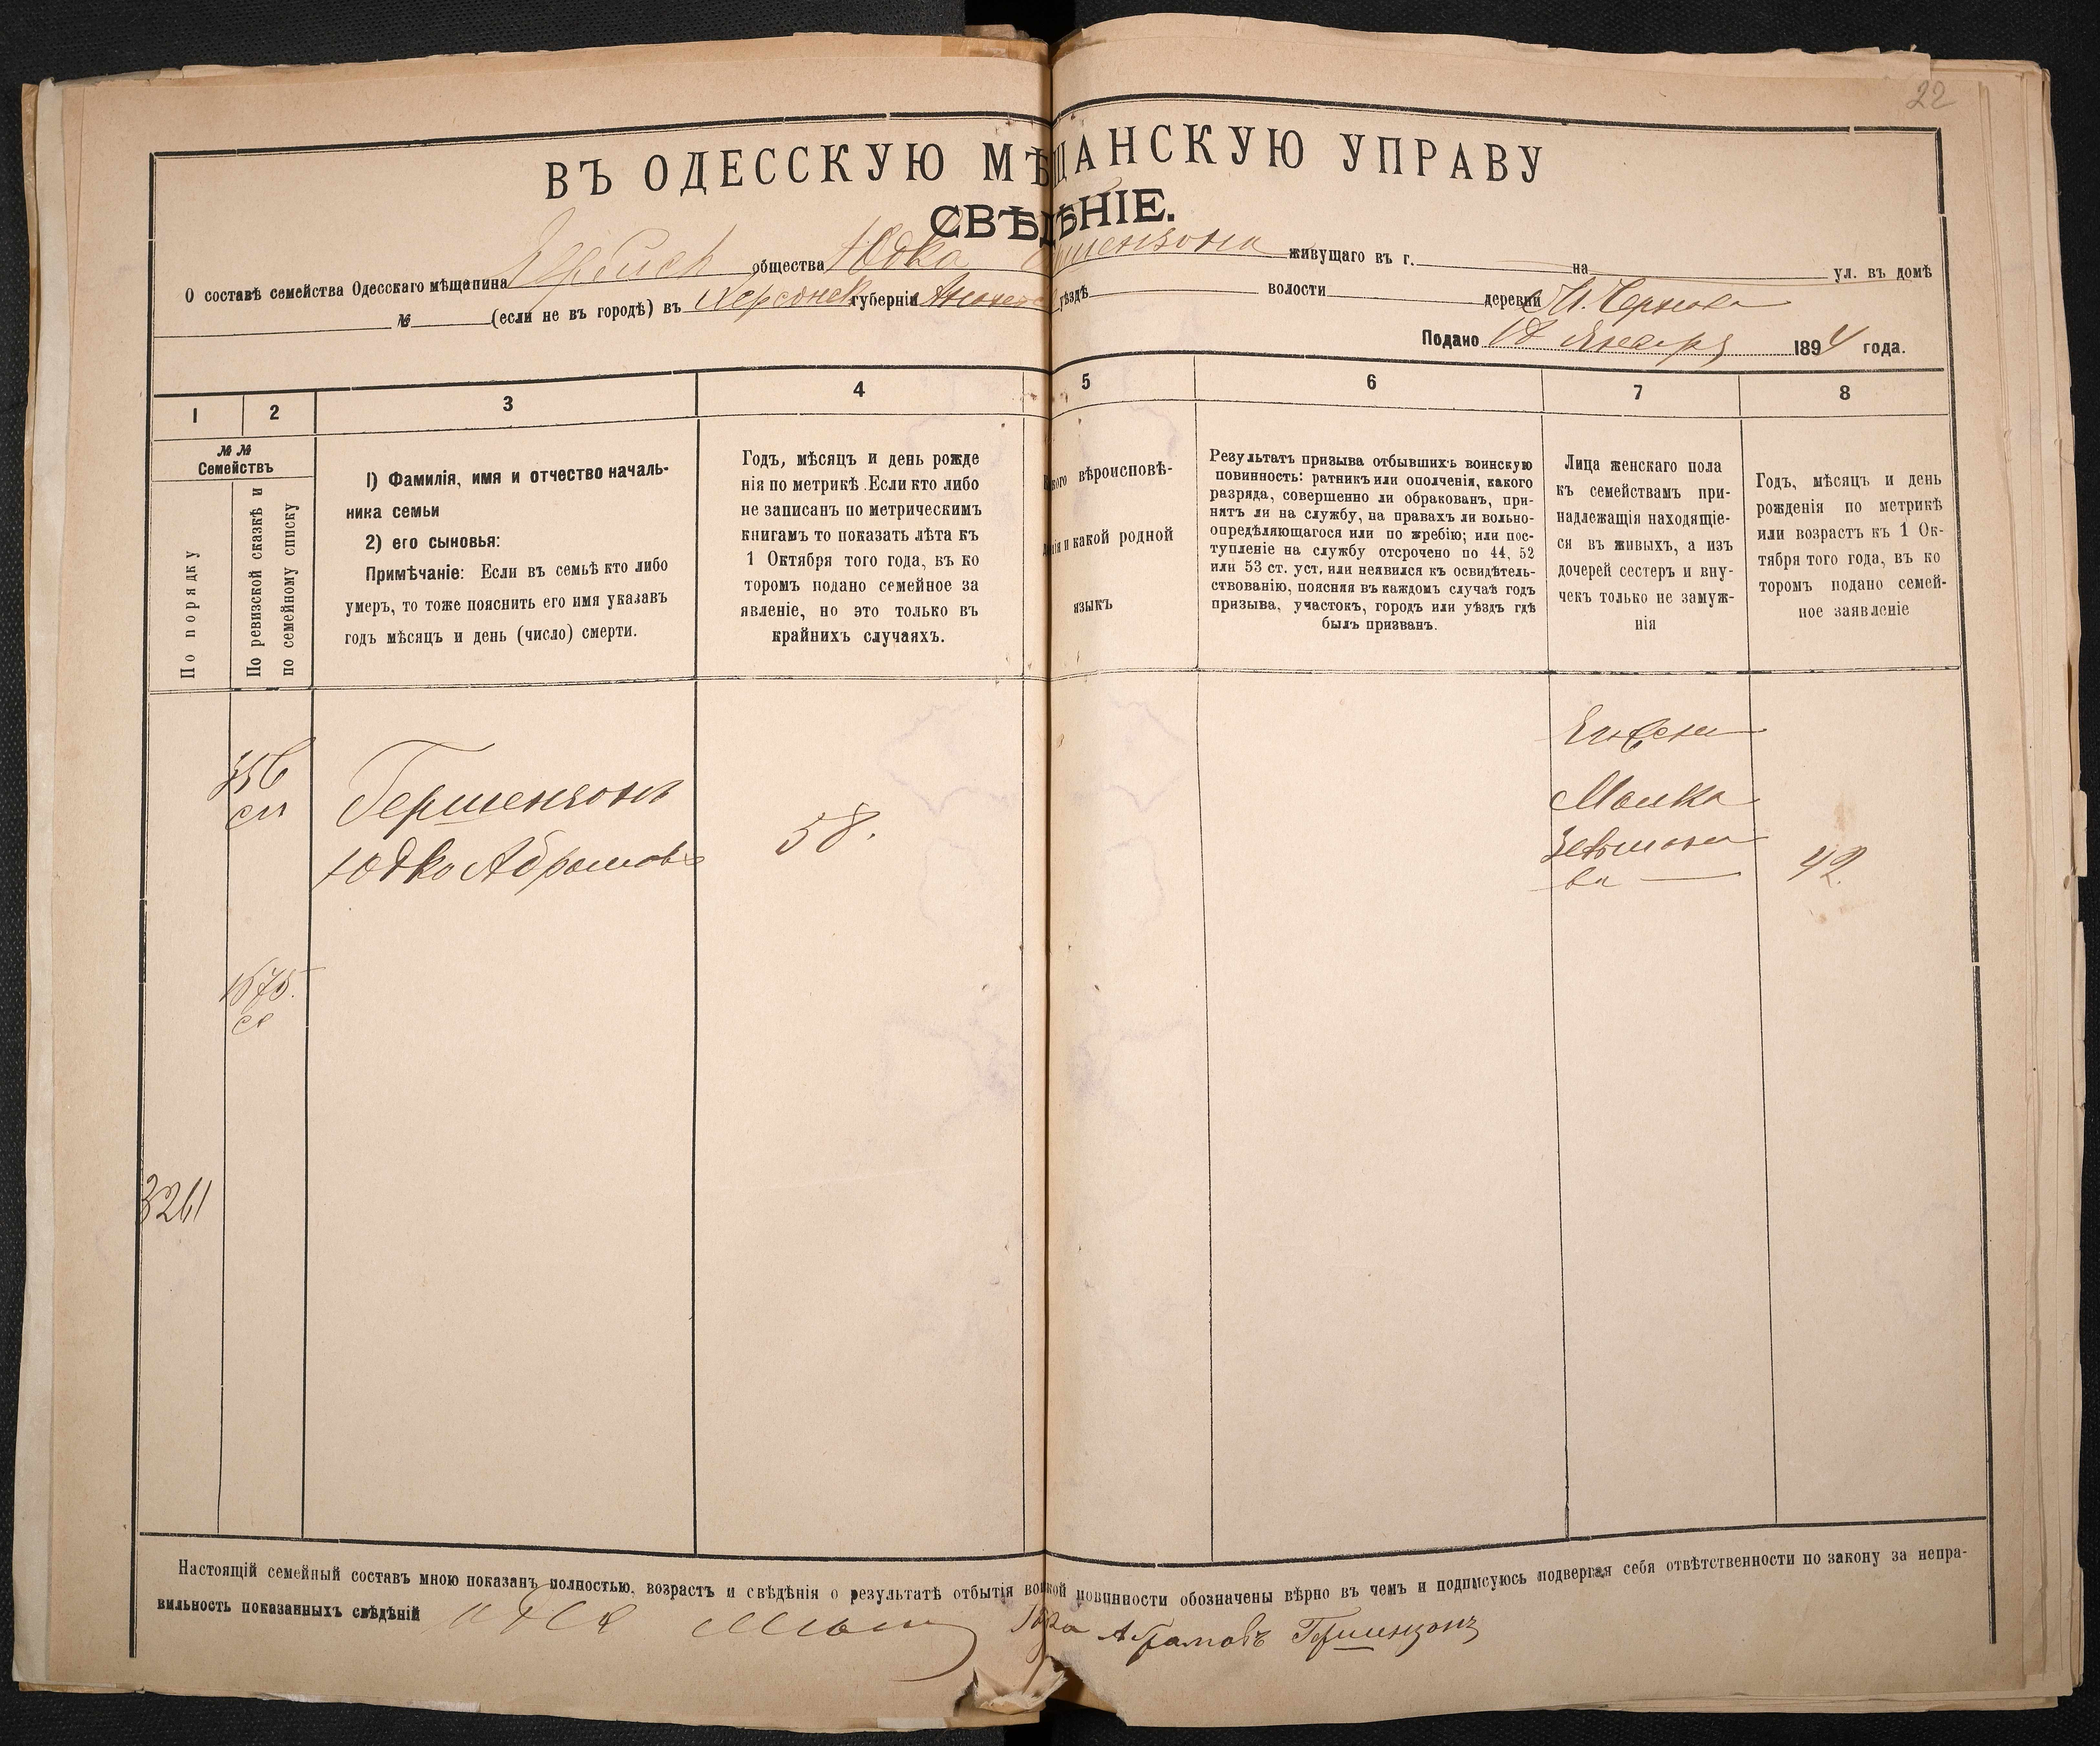 22
ВЪ ОДЕССКУЮ МѢЩАНСКУЮ УПРАВУ
СВѢДѢНІЕ.
О составѣ семейства Одесскаго мѣщанина общества Юдка живущаго въ г. на ул. въ домѣ
№ (если не въ городѣ) въ Херсонск губерніи уѣздѣ волости деревни
Подано 18 Января 1894 года.
1 2 3 4 5 6 7 8
№ №
Семействъ
По порядку
По ревизской сказкѣ и
по семейному списку
1) Фамилія, имя и отчество началь-
ника семьи
2) его сыновья:
Примѣчаніе: Если въ семьѣ кто либо
умеръ, то тоже пояснить его имя указавъ
годъ мѣсяцъ и день (число) смерти.
Годъ, мѣсяцъ и день рожде
нія по метрикѣ. Если кто либо
не записанъ по метрическимъ
книгамъ то показать лѣта къ
1 Октября того года, въ ко
торомъ подано семейное за
явленіе, но это только въ
крайнихъ случаяхъ.
вѣроисповѣ-
и какой родной
языкъ
Результатъ призыва отбывшихъ воинскую
повинность: ратникъ или ополченія, какого
разряда, совершенно ли обракованъ, при-
нятъ ли на службу, на правахъ ли вольно-
опредѣляющагося или по жребію; или пос-
тупленіе на службу отсрочено по 44, 52
или 53 ст. уст. или неявился къ освидѣтель-
ствованію, поясняя въ каждомъ случаѣ годъ
призыва, участокъ, городъ или уѣздъ гдѣ
былъ призванъ.
Лица женскаго пола
къ семействамъ при-
надлежащія находящіе-
ся въ живыхъ, а изъ
дочерей сестеръ и вну-
чекъ только не замуж-
нія
Годъ, мѣсяцъ и день
рожденія по метрикѣ
или возрастъ къ 1 Ок-
тября того года, въ ко
торомъ подано семей-
ное заявленіе
356
сл
Гершензонъ
Юдко Абрамовъ
58.
Малка
42.
1875.
3261
Настоящій семейный составъ мною показанъ полностью, возрастъ и свѣдѣнія о результатѣ отбытія воинской повинности обозначены вѣрно въ чемъ и подписуюсь подвергая себя отвѣтственности по закону за непра-
вильность показанныхъ свѣдѣній Абрамовъ Гершензонъ